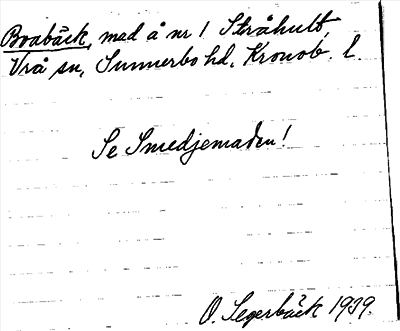 Boabäck, mad å nr 1 Stråhult,
Vrå sn, Sunnerbo hd, Kronob. l.
Se Smedjemaden!
O. Segerbäck 1939.